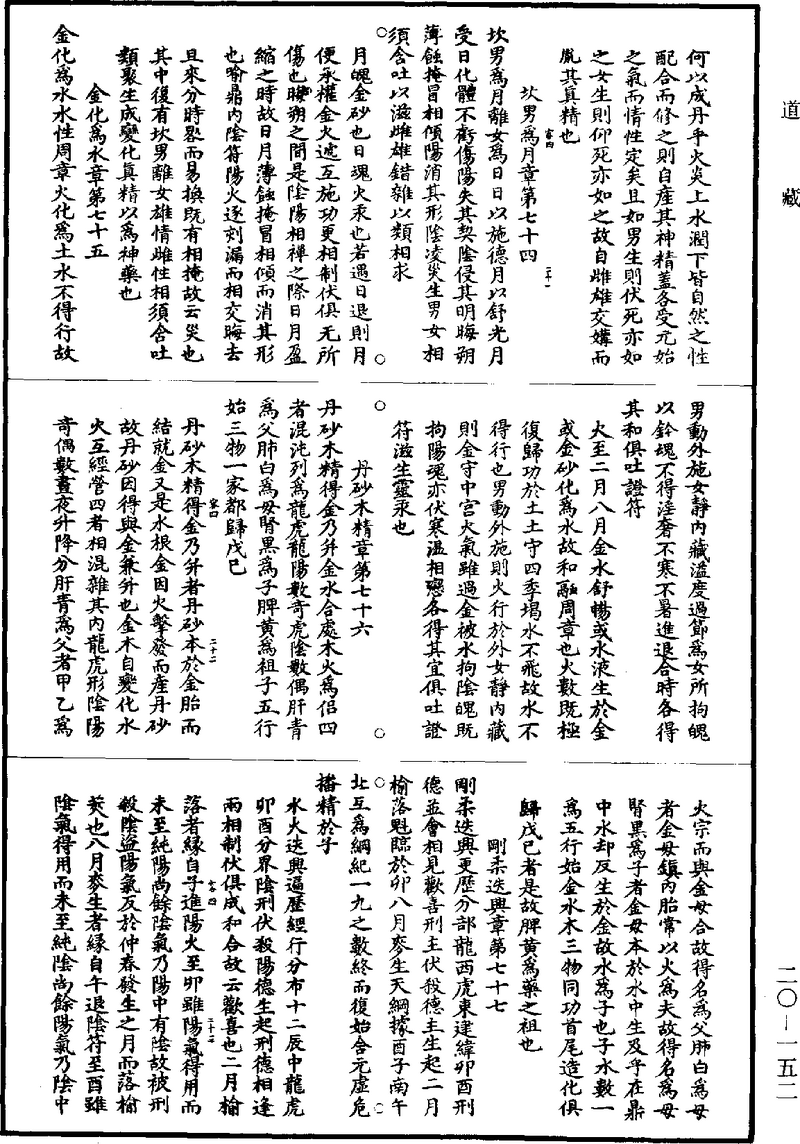 道藏
何以成丹乎火炎上水潤下皆自然之性
配合而修之則自產其神精蓋各受元始
之氣而情性定矣且如男生則伏死亦如
之女生則仰死亦如之故自雌雄交媾而
胤其真精也
坎男為月章第七十四
坎男為月離女為日日以施德月以舒光月
受日化體不虧傷陽失其契陰侵其明晦朔
薄蝕掩冒相傾陽消其形陰凌災生男女相
須含吐以滋雌雄錯雜以類相求
月魄金砂也日魂火汞也若遇日退則月
便承權金火遞互施功更相制伏俱无所
傷也晦朔之間是陰陽相禪之際日月盈
縮之時故日月薄蝕掩冒相傾而消其形
也喻鼎內陰符陽火逐刻漏而相交晦去
且來分時晷而易換既有相掩故云災也
其中復有坎男離女雄情雌性相須含吐
類聚生成變化真精以為神藥也
金化為水章第七十五
金化為水水性周章火化為土水不得行故
男動外施女靜內藏溢度過節為女所拘魄
以鈐魂不得淫奢不寒不暑進退合時各得
其和俱吐證符
火至二月八月金水舒暢或水液生於金
或金砂化為水故和融周章也火數既極
復歸功於土土守四季堨水不飛故水不
得行也男動外施則火行於外女靜內藏
則金守中宮火氣雖過金被水拘陰魄既
拘陽魂亦伏寒溫相應各得其宜俱吐證
符滋生靈汞也
丹砂木精章第七十六
丹砂木精得金乃并金水合處木火為侶四
者混沌列為龍虎龍陽數奇虎陰數偶肝青
為父肺白為母腎黑為子脾黃為祖子五行
始三物一家都歸戊己
丹砂木精得金乃并者丹砂本於金胎而
結就金又是水根金因火擊發而產丹砂
故丹砂因得與金兼并也金木自變化水
火互經營四者相混雜其內龍虎形陰陽
奇偶數晝夜升降分肝青為父者甲乙為
火宗而與金母合故得名為父肺白為母
者金母鎮內胎常以火為夫故得名為母
腎黑為子者金母本於水中生及乎在鼎
中水却反生於金故水為子也子水數一
為五行始金水木三物同功首尾造化俱
歸戊己者是故脾黃為藥之祖也
剛柔迭興章第七十七
剛柔迭興更歷分部龍西虎東建緯卯酉刑
德並會相見歡喜刑主伏殺德主生起二月
榆落魁臨於卯八月麥生天綱據酉子南午
北互為綱紀一九之數終而復始含元虛危
播精於子
水火迭興遍歷經行分布十二辰中龍虎
卯酉分界陰刑伏殺陽德生起刑德相逢
兩相制伏俱成和合故云歡喜也二月榆
落者緣自子進陽火至卯雖陽氣得用而
未至純陽尚餘陰氣乃陽中有陰故被刑
殺陰盜陽氣反於仲春發生之月而落榆
莢也八月麥生者緣自午退陰符至酉雖
陰氣得用而未至純陰尚餘陽氣乃陰中
二〇—一五二